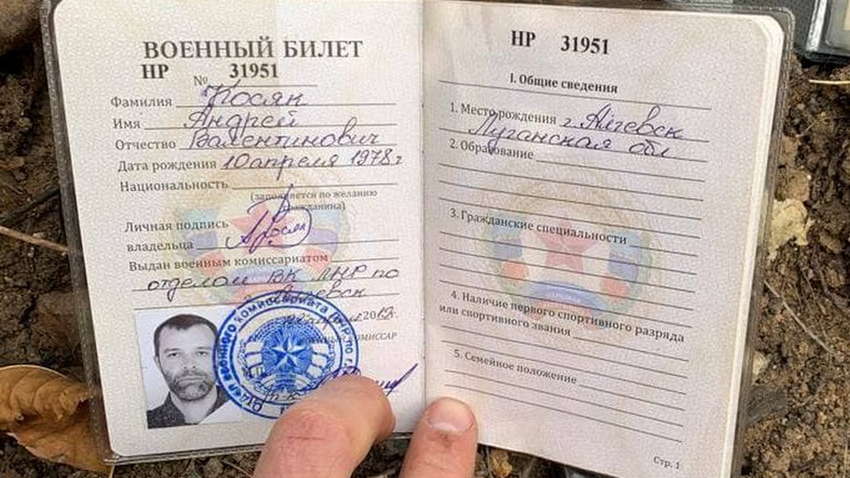 ВОЕННЫЙ БИЛЕТ
НР № 31951
Фамилия Косяк
Имя Андрей
Отчество Валентинович
Дата рождения 10 апреля 1978 г
Национальность
(заполняется по желанию
гражданина)
Личная подпись
владельца
Выдан военным комиссариатом
отделом ВК ЛНР по
г. Алчевск
НР 31951
I. Общие сведения
1. Место рождения г. Алчевск
Луганская обл
2. Образование
3. Гражданские специальности
4. Наличие первого спортивного разряда
или спортивного звания
5. Семейное положение
Стр. 1